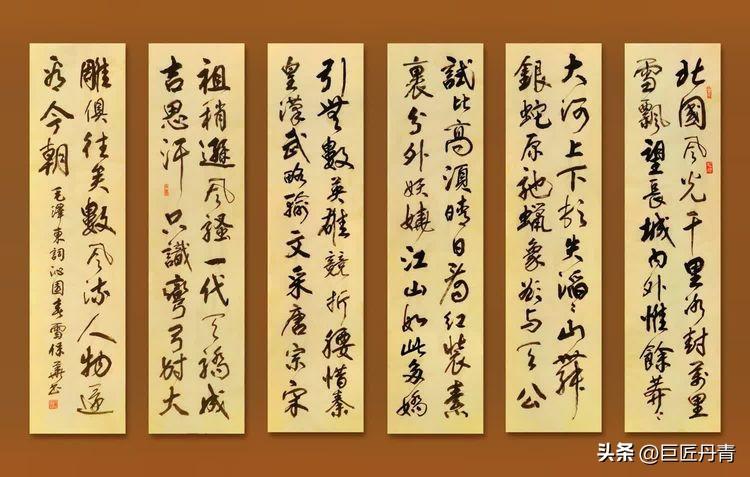 北國风光千里冰封萬里
雪飄望長城内外惟餘莽〻
大河上下頓失滔〻山舞
銀蛇原馳蠟象欲与天公
試比高須晴日看红裝素
裹分外妖嬈江山如此多嬌
引無數英雄競折腰惜秦
皇漢武略輸文采唐宗宋
祖稍遜风騷一代天驕成
吉思汗只識彎弓射大
雕俱往矣數风流人物還
看今朝
毛澤東詞沁園春雪保華书
头条 @巨匠丹青